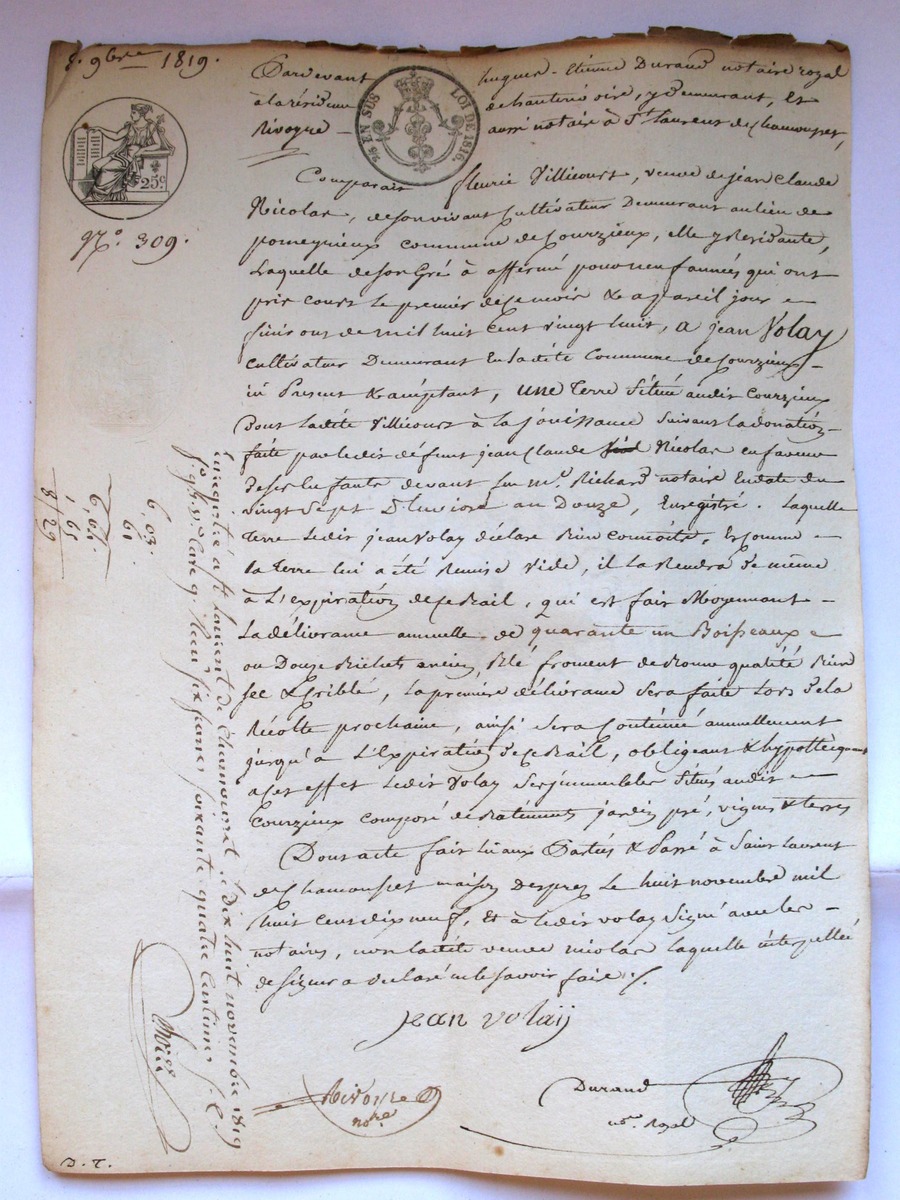 8. 9bre 1819.
25c
25 EN SUS LOI DE 1816.
No. 309.
Pardevant hugues-Etienne Durand notaire royal
à la résidence de hauterivoire, y demeurant, et
Rivoyre aussi notaire à St. Laurent de chamousset,
Comparait fleurie Villicourt, veuve de jean Claude
Nicolas, de son vivant Cultivateur Demeurant au lieu de
pomeynieux commune de Courzieux, elle y Residante,
Laquelle de son Gré à affermé pour neuf années qui ont
pris cours Le premier de ce mois & a pareil jour
finiront de mil huit Cent vingt huit, a jean Volay
cultivateur Demeurant En ladite Commune de Courzieux
ici Present & acceptant, une Terre Située audit Courzieux
Dont ladite Villicourt à la jouissance Suivant la donation
faite par ledit défunt jean Claude Nicolas en faveur
de ses Enfants devant feu me. Richard notaire En date du
vingt Sept Pluviose an Douze, Enregistré. Laquelle
Terre Ledit jean Volay déclare Bien connoitre, Et Comme
la Terre lui a été Remise Vide, il La Rendra de même
à L'expiration de ce Bail, qui est fait Moyennant
La délivrance annuelle de quarante un Boisseaux
ou Douze Bichets ancien Blé froment de Bonne qualité Bien
sec & Criblé, La première délivrance Sera faite Lors de la
Récolte prochaine, ainsi Sera Continué annuellement
jusqu'à L'Expiration de ce Bail, obligeant & hypotecquant
a cet effet Ledit Volay Ses immeubles Situés audit
Courzieux composé de Batiments jardin pré, vignes & terres
Dont acte fait lu aux Parties & Passé à Saint Laurent
de Chamousset maison Desprez Le huit novembre mil
huit Cent dix neuf, Et à Ledit volay Signé avec les
notaires, non ladite veuve nicolas laquelle interpellée
de Signer a déclaré ne le Savoir faire
jean volaij
Rivoyre
nore
Durand
nre. Royal
Enregistré à St. Laurent de Chamousset, le dix huit novembre 1819
Reçu six francs soixante quatre centimes
6,03
61
6,64
1,65
8/29
D. T.